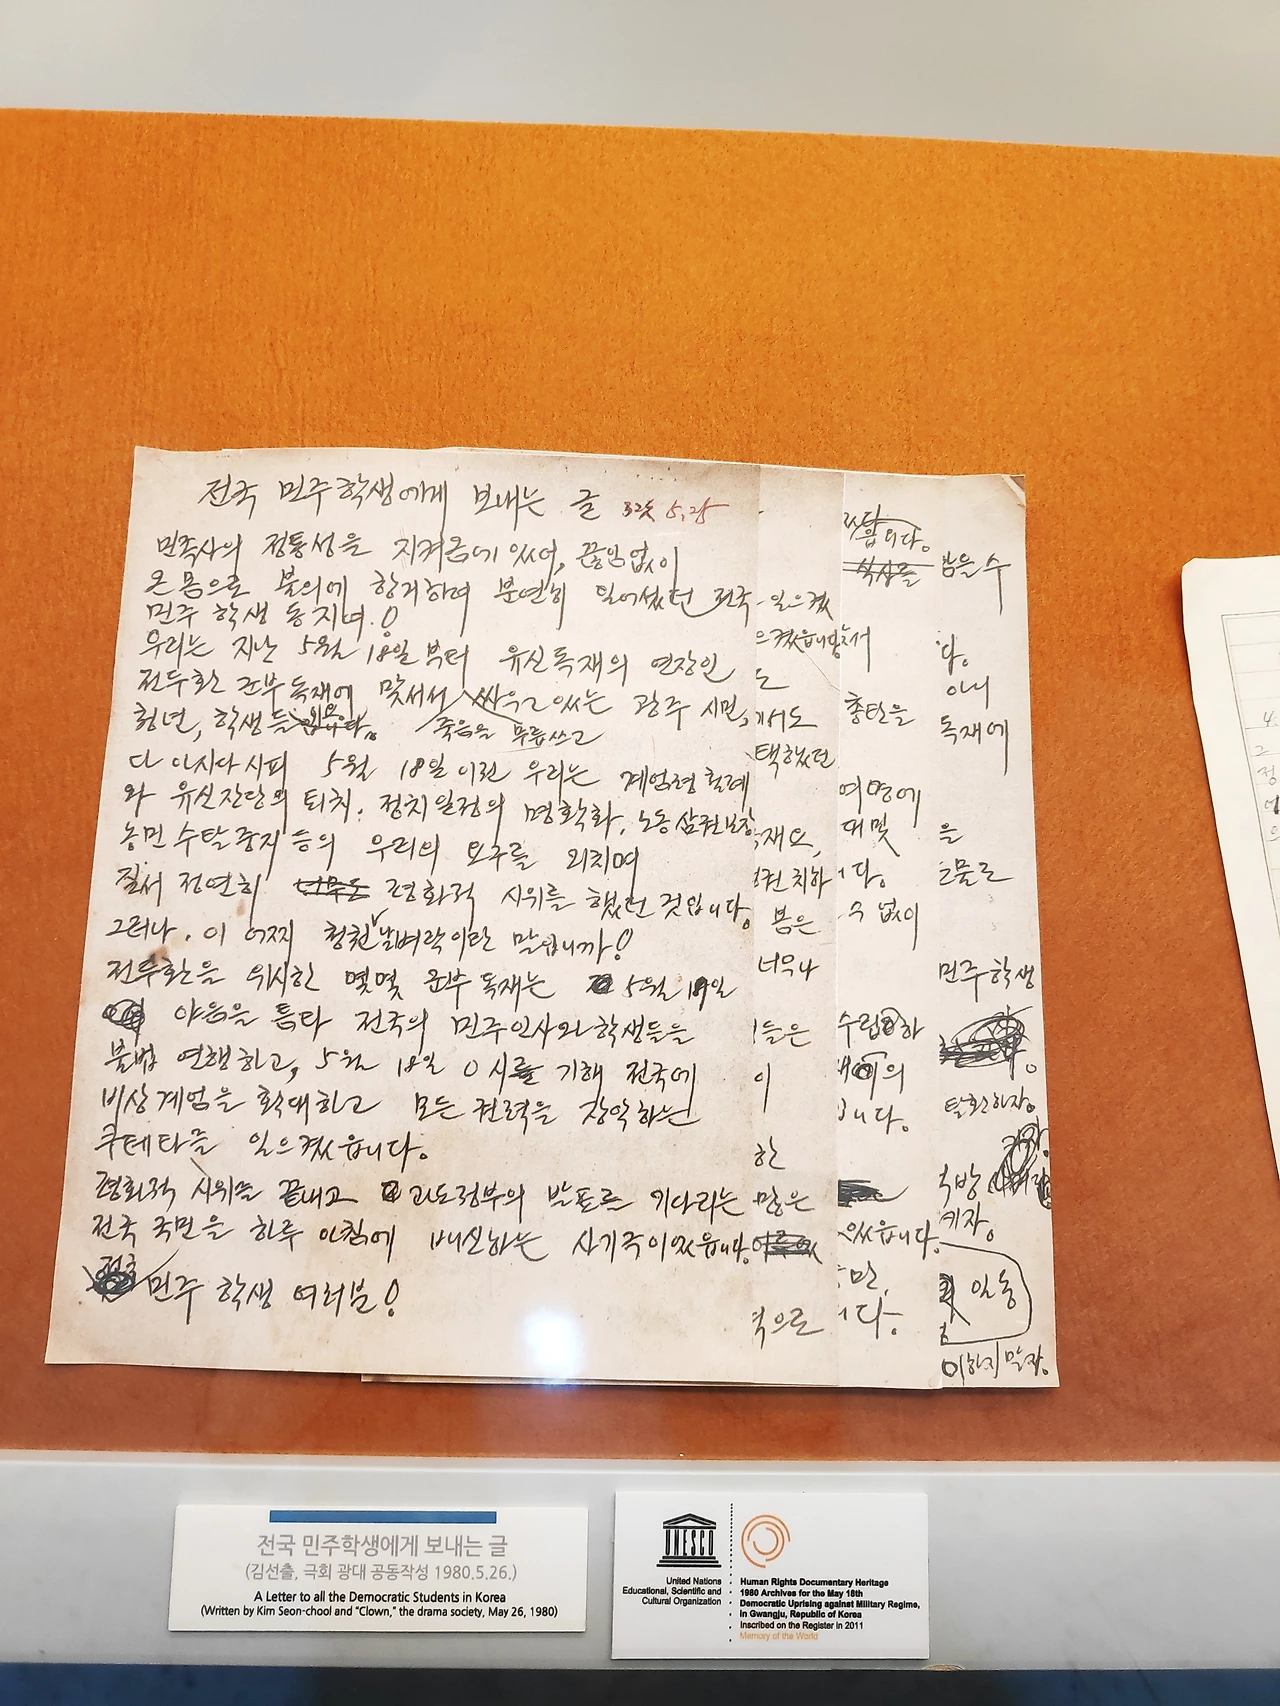 전국 민주학생에게 보내는 글 5.25
민족사의 정통성을 지켜옴에 있어, 끊임없이
온 몸으로 불의에 항거하며 분연히 일어섰던 전국
민주 학생 동지여!
우리는 지난 5월 18일 부터 유신독재의 연장인
전두환 군부독재에 맞서서 싸우고 있는 광주 시민,
죽음을 무릅쓰고
청년, 학생들입니다.
다 아시다시피 5월 18일 이전 우리는 계엄령 철폐
와 유신잔당의 퇴치, 정치일정의 명확화, 노동삼권보장
농민 수탈 중지 등의 우리의 요구를 외치며
질서 정연히 평화적 시위를 했었던 것입니다.
그러나, 이 어찌 청천 날벼락이란 말입니까!
전두환을 위시한 몇몇 군부 독재는 5월 17일
야음을 틈타 전국의 민주인사와 학생들을
불법 연행하고, 5월 18일 0시를 기해 전국에
비상계엄을 확대하고 모든 권력을 장악하는
쿠테타를 일으켰읍니다.
평화적 시위를 끝내고 과도정부의 발표를 기다리는
전국 국민을 하루 아침에 배신하는 사기극이었읍니다.
민주 학생 여러분!
일으켰
으켰읍니다
도
택했던
재요,
권 치하
봄은
너무나
들은
이
한
많은
적으로
읍니다.
총탄을
여명에
대 및
다.
수 없이
수립하
의
입니다.
있읍니다.
만,
니다.
맘을 수
다.
아니
독재에
을
민주 학생
탈환하자.
키자.
일동
이하지 말자.
전국 민주학생에게 보내는 글
(김선출, 극회 광대 공동작성 1980.5.26.)
A Letter to all the Democratic Students in Korea
(Written by Kim Seon-chool and "Clown," the drama society, May 26, 1980)
UNESCO
United Nations
Educational, Scientific and
Cultural Organization
Human Rights Documentary Heritage
1980 Archives for the May 18th
Democratic Uprising against Military Regime,
in Gwangju, Republic of Korea
Inscribed on the Register in 2011
Memory of the World